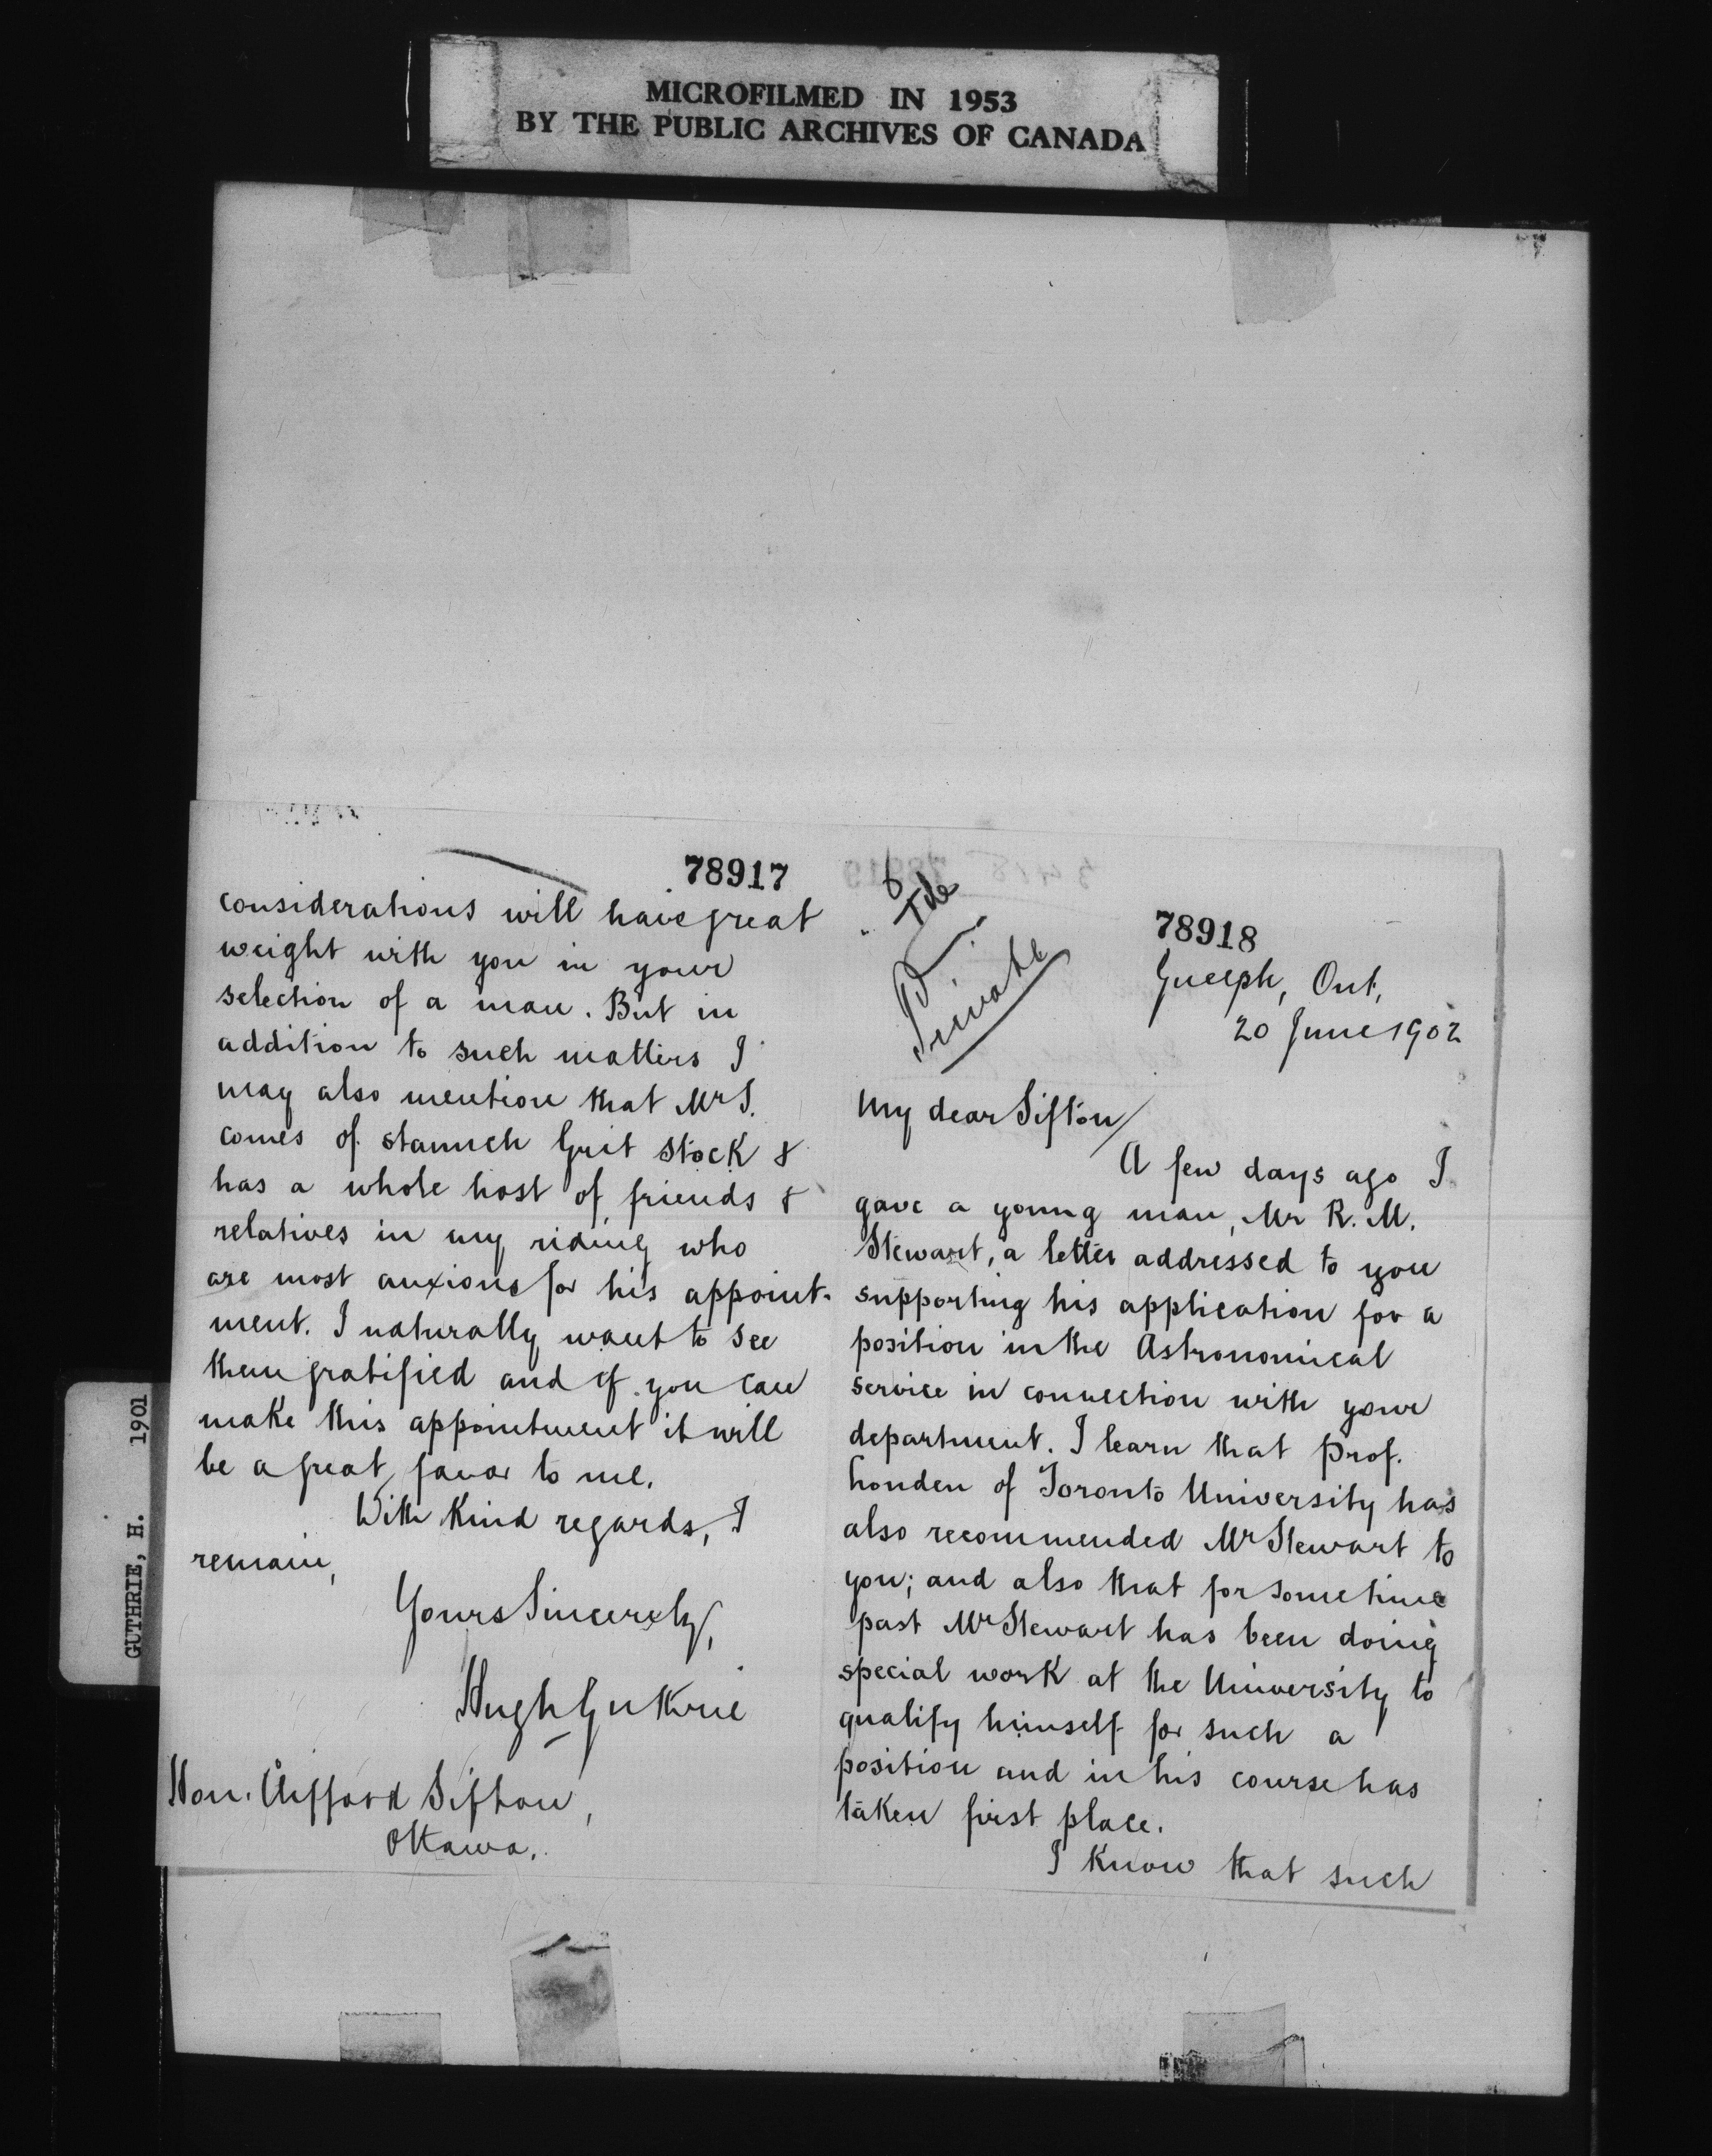 MICROFILMED IN 1953
BY THE PUBLIC ARCHIVES OF CANADA
GUTHRIE, H. 1901
78918
Private
Guelph, Ont,
20 June 1902
My dear Sifton/
A few days ago I
gave a young man, Mr R. M.
Stewart, a letter addressed to you
supporting his application for a
position in the Astronomical
service in connection with your
department. I learn that Prof.
Louden of Toronto University has
also recommended Mr Stewart to
you; and also that for sometime
past Mr Stewart has been doing
special work at the University to
qualify himself for such a
position and in his course has
taken first place.
I know that such
78917
considerations will have great
weight with you in your
selection of a man. But in
addition to such matters I
may also mention that Mr S.
comes of staunch Grit stock &
has a whole host of friends &
relatives in my riding who
are most anxious for his appoint-
ment. I naturally want to see
them gratified and if you can
make this appointment it will
be a great favor to me.
With kind regards, I
remain,
Yours Sincerely,
Hugh Guthrie
Hon. Clifford Sifton,
Ottawa.